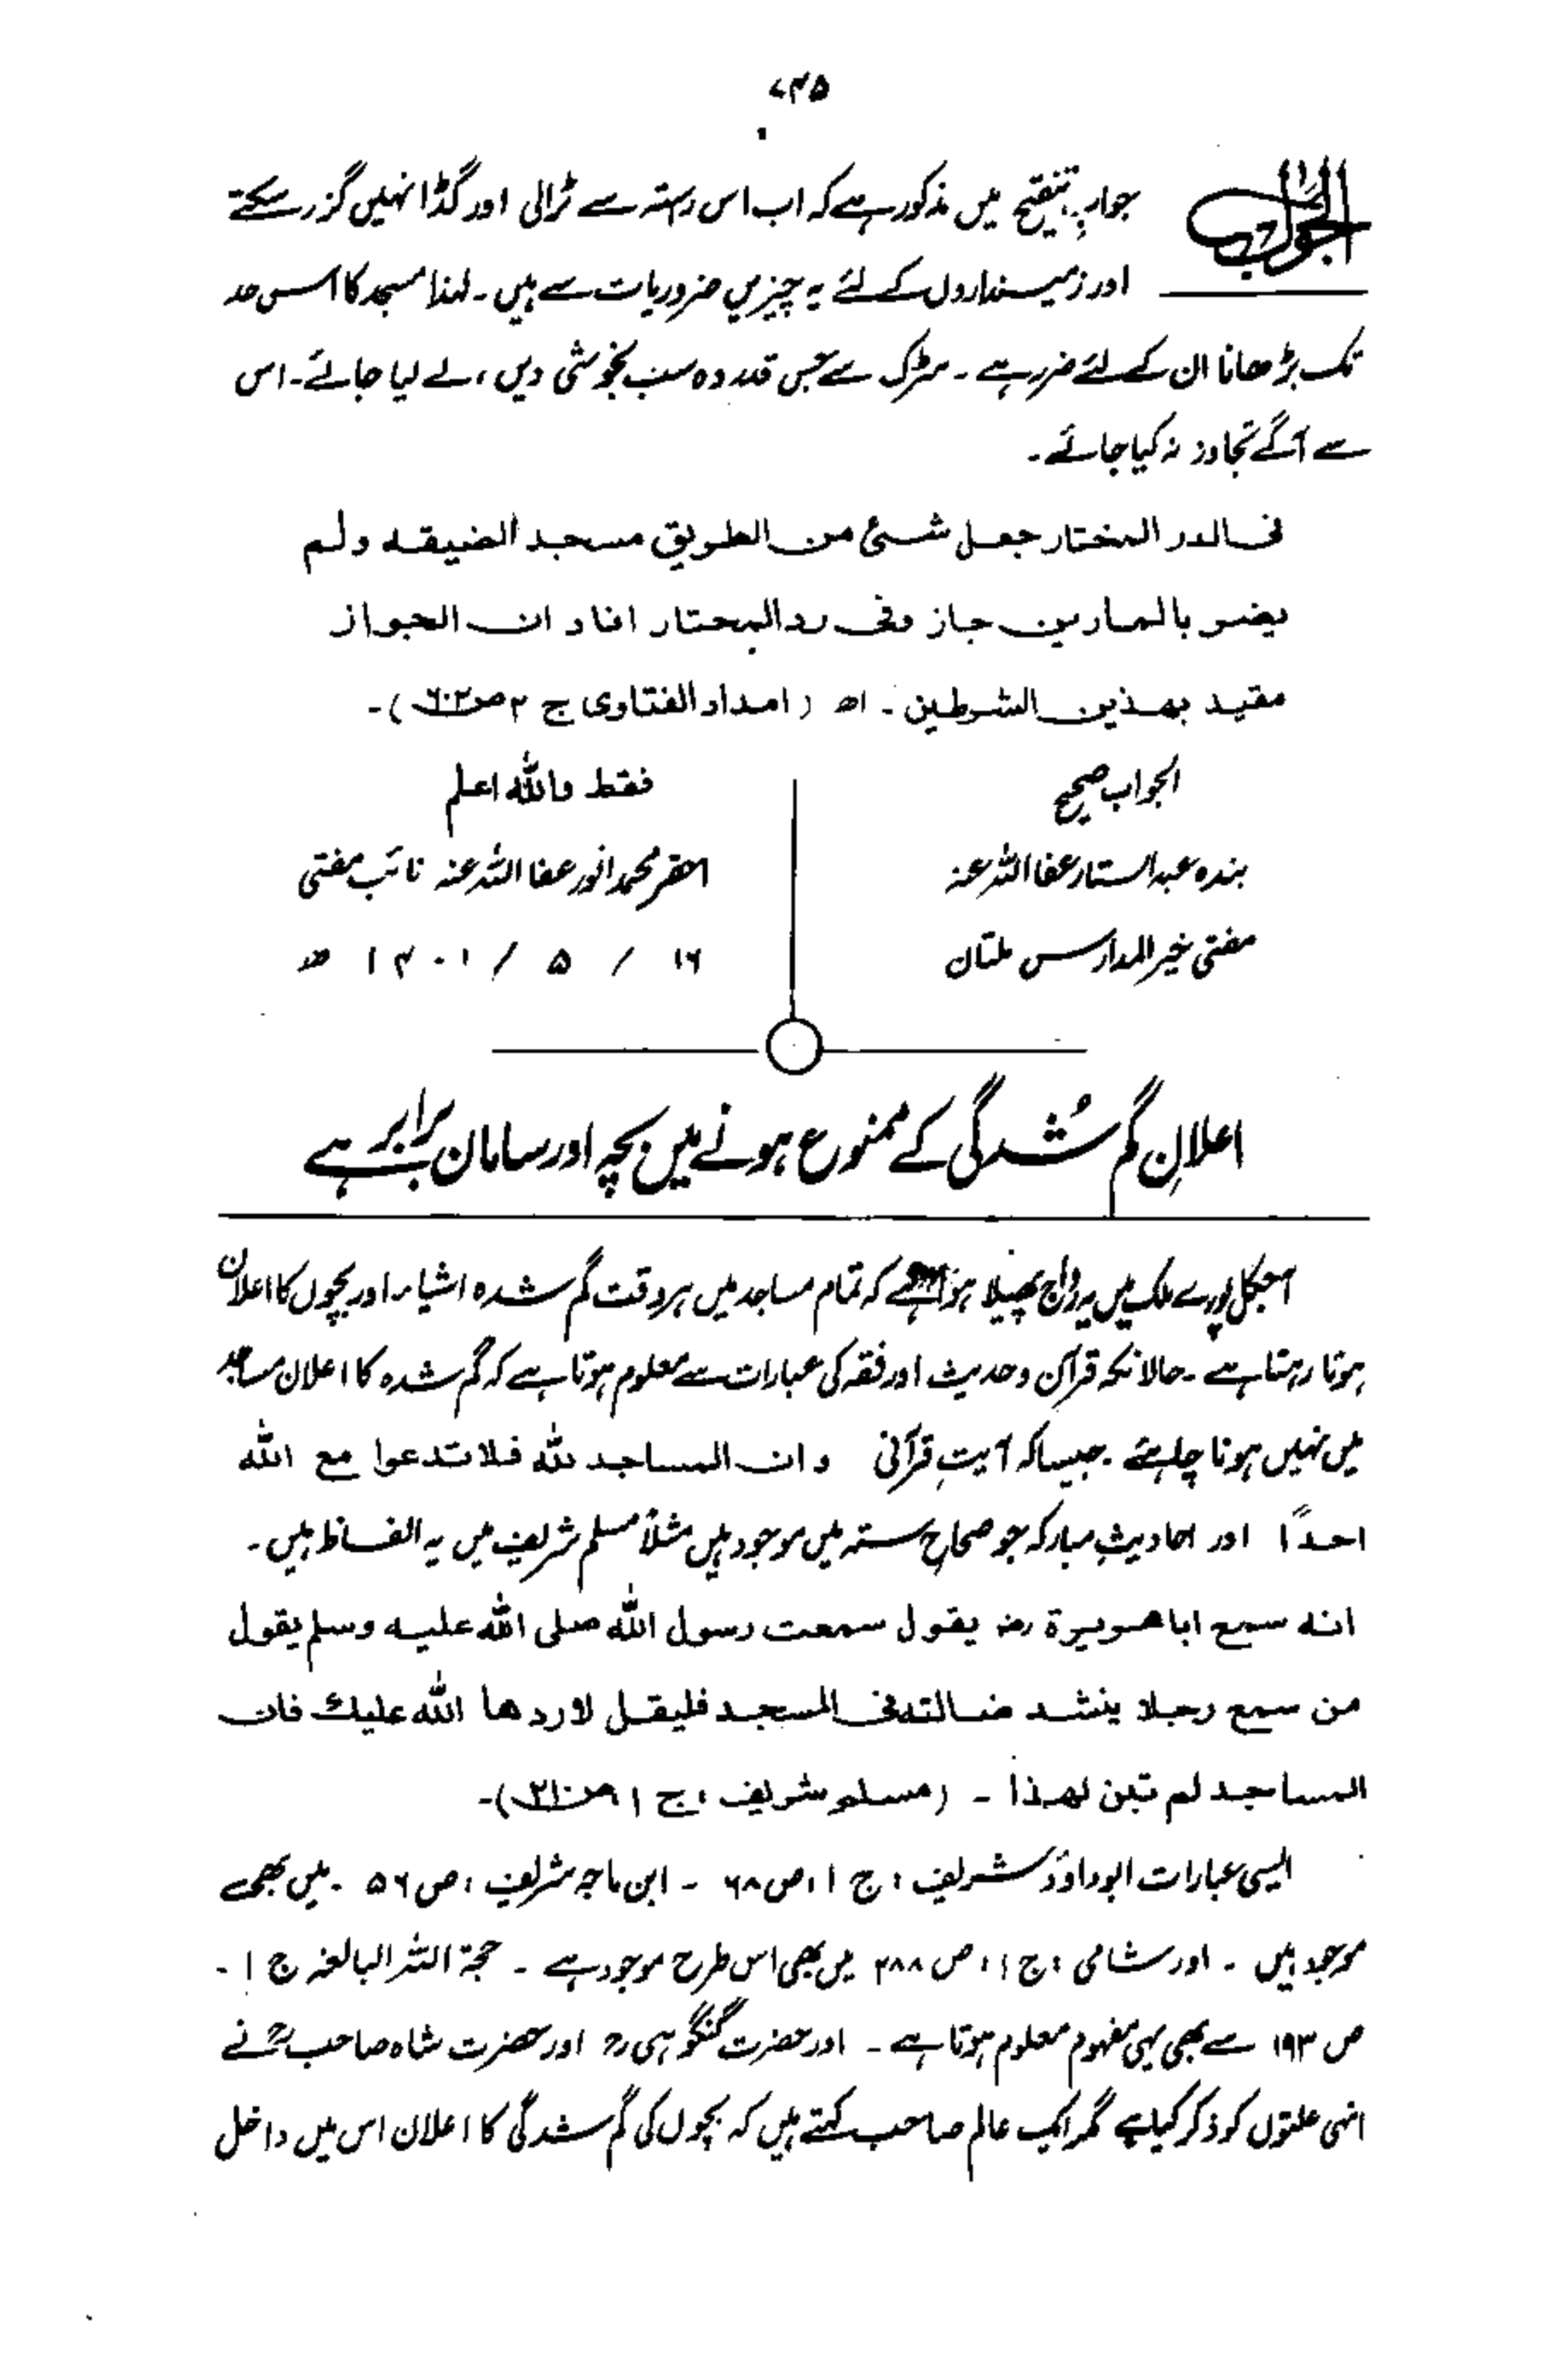 ۷۴۵
الجواب جوابِ تنقیح میں مذکور ہے کہ اب اس رستہ سے ٹرالی اور گڈا نہیں گزر سکتے
اور زمینداروں کے لئے یہ چیزیں ضروریات سے ہیں۔ لہٰذا مسجد کا اس حد
تک بڑھانا ان کے لئے ضرر ہے۔ سڑک سے جس قدر وہ سب بخوشی دیں، لے لیا جائے۔ اس
سے آگے تجاوز نہ کیا جائے۔
فی الدر المختار جعل شئ من الطریق مسجد الضیقه ولم
یضر بالمارین جاز وفی رد المحتار افاد ان الجواز
مقید بهذین الشرطین۔ اھ (امداد الفتاوی ج ۲ ص۶۰۲)۔
الجواب صحیح
بندہ عبدالستار عفا اللہ عنہ
مفتی خیر المدارس ملتان
فقط واللہ اعلم
احقر محمد انور عفا اللہ عنہ نائب مفتی
۱۶ / ۵ / ۱۴۰۱ ھ
اعلانِ گم شُدگی کے ممنوع ہونے میں بچہ اور سامان برابر ہے
آجکل پورے ملک میں یہ رواج پھیلا ہوا ہے کہ تمام مساجد میں ہر وقت گم شدہ اشیاء اور بچوں کا اعلان
ہوتا رہتا ہے۔ حالانکہ قرآن وحدیث اور فقہ کی عبارات سے معلوم ہوتا ہے کہ گم شدہ کا اعلان مساجد
میں نہیں ہونا چاہئے۔ جیسا کہ آیتِ قرآنی وان المساجد لله فلا تدعوا مع الله
احدًا اور احادیثِ مبارکہ جو صحاحِ ستہ میں موجود ہیں مثلاً مسلم شریف میں یہ الفاظ ہیں۔
انه سمع اباهریرة رضہ یقول سمعت رسول الله صلی الله علیه وسلم یقول
من سمع رجلا ینشد ضالته فی المسجد فلیقل لا ردها الله علیك فان
المساجد لم تبن لهذا ۔ (مسلم شریف، ج ۱ ص۲۱۰)۔
ایسی عبارات ابوداؤد شریف، ج ۱، ص ۶۸ ۔ ابن ماجہ شریف، ص ۵۶ ۔ میں بھی
موجود ہیں ۔ اور شامی، ج ۱، ص ۲۸۸ میں بھی اس طرح موجود ہے ۔ حجۃ اللہ البالغہ ج ۱ ۔
ص ۱۹۳ سے بھی یہی مفہوم معلوم ہوتا ہے ۔ اور حضرت گنگوہی رح اور حضرت شاہ صاحبؒ نے
انہی علتوں کو ذکر کیا ہے مگر ایک عالم صاحب کہتے ہیں کہ بچوں کی گم شدگی کا اعلان اس میں داخل